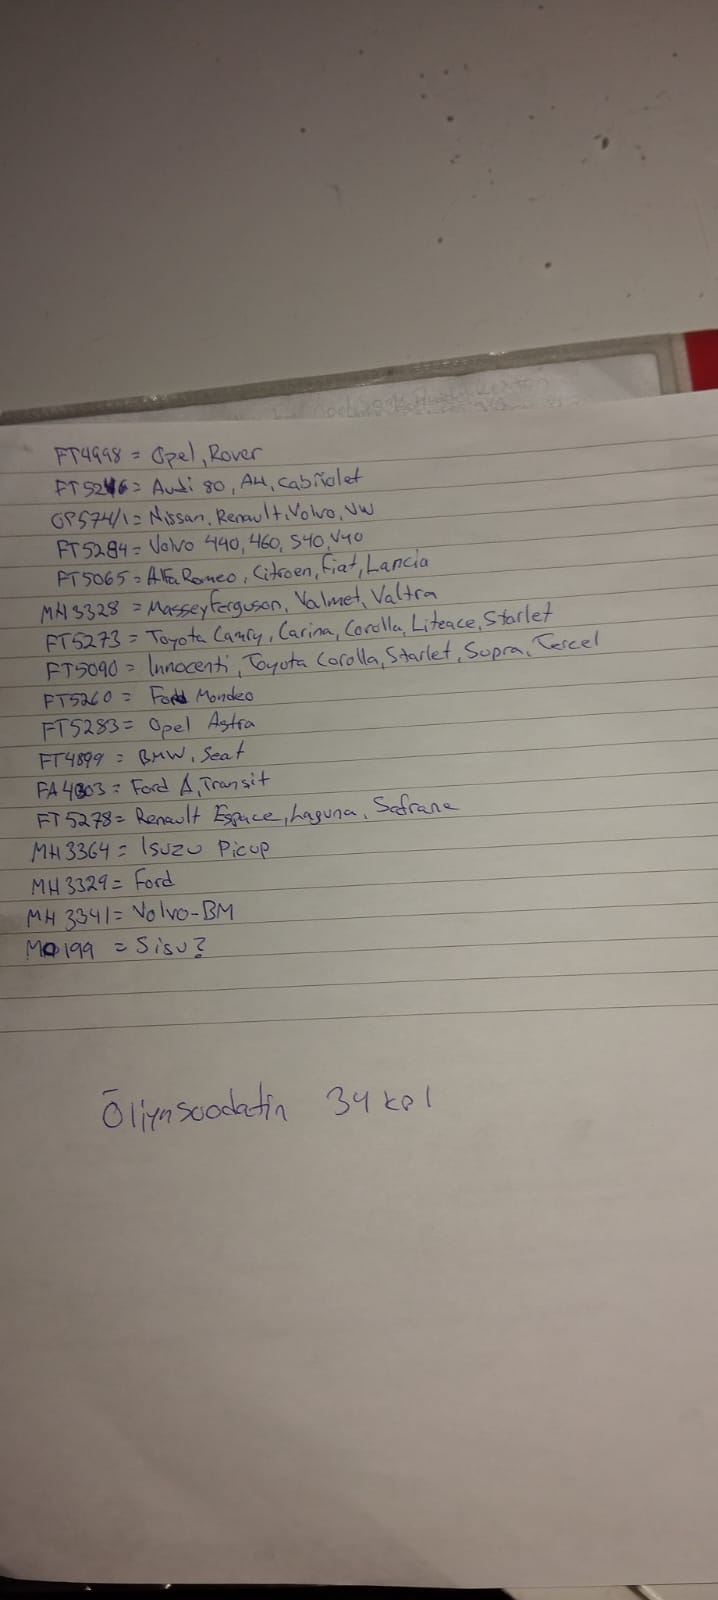 FT4998 = Opel, Rover
FT5246 = Audi 80, A4, Cabriolet
OP574/1 = Nissan, Renault, Volvo, VW
FT5284 = Volvo 440, 460, S40, V40
FT5065 = Alfa Romeo, Citroen, Fiat, Lancia
MH3328 = Massey Ferguson, Valmet, Valtra
FT5273 = Toyota Camry, Carina, Corolla, Liteace, Starlet
FT5090 = Innocenti, Toyota Corolla, Starlet, Supra, Tercel
FT5260 = Ford Mondeo
FT5283 = Opel Astra
FT4899 = BMW, Seat
FA4303 = Ford A, Transit
FT5278 = Renault Espace, Laguna, Safrane
MH3364 = Isuzu Picup
MH3329 = Ford
MH3341 = Volvo-BM
MO199 = Sisu?
Öljynsuodatin 34 kpl